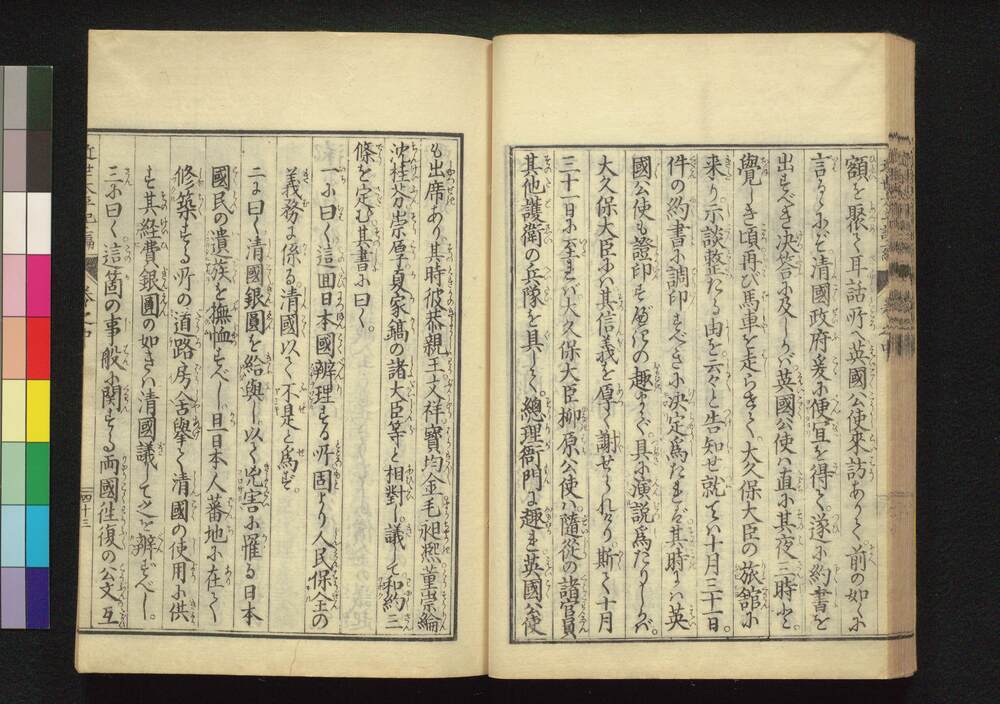 額を聚て耳話所へ英國公使來訪ありて前の如くに
言るゝにぞ清國政府爰に便宜を得て遂に約書を
出すべき決答に及しかバ英國公使ハ直に其夜三時と
覺しき頃再び馬車を走らせて大久保大臣の旅舘に
來り示談整たる由を云々と告知せ就てハ十月三十一日
件の約書に調印すべきに決定爲たれバ其時にハ英
國公使も證印すべきの趣まで具に演説爲たりしかバ
大久保大臣にハ其信義を厚く謝せられたり斯て十月
三十一日に至れバ大久保大臣柳原公使ハ隨從の諸官員
其他護衛の兵隊を具して總理衙門に趣き英國公使
も出席あり其時彼恭親王文祥寶均金毛昶熙董崇綸
沈桂芬崇厚夏家鎬の諸大臣等と相對し議して和約三
條を定む其書に曰く
一に曰く這回日本國辨理する所固より人民保全の
義務に係る清國以て不是と爲ず
二に曰く清國銀圓を給與し以て兇害に罹る日本
國民の遺族を撫恤すべし且日本人蕃地に在て
修築する所の道路房舎擧て清國の使用に供
す其経費銀圓の如きハ清國議して之を辨ずべし
三に曰く這箇の事般に関する両國徃復の公文互
四十三